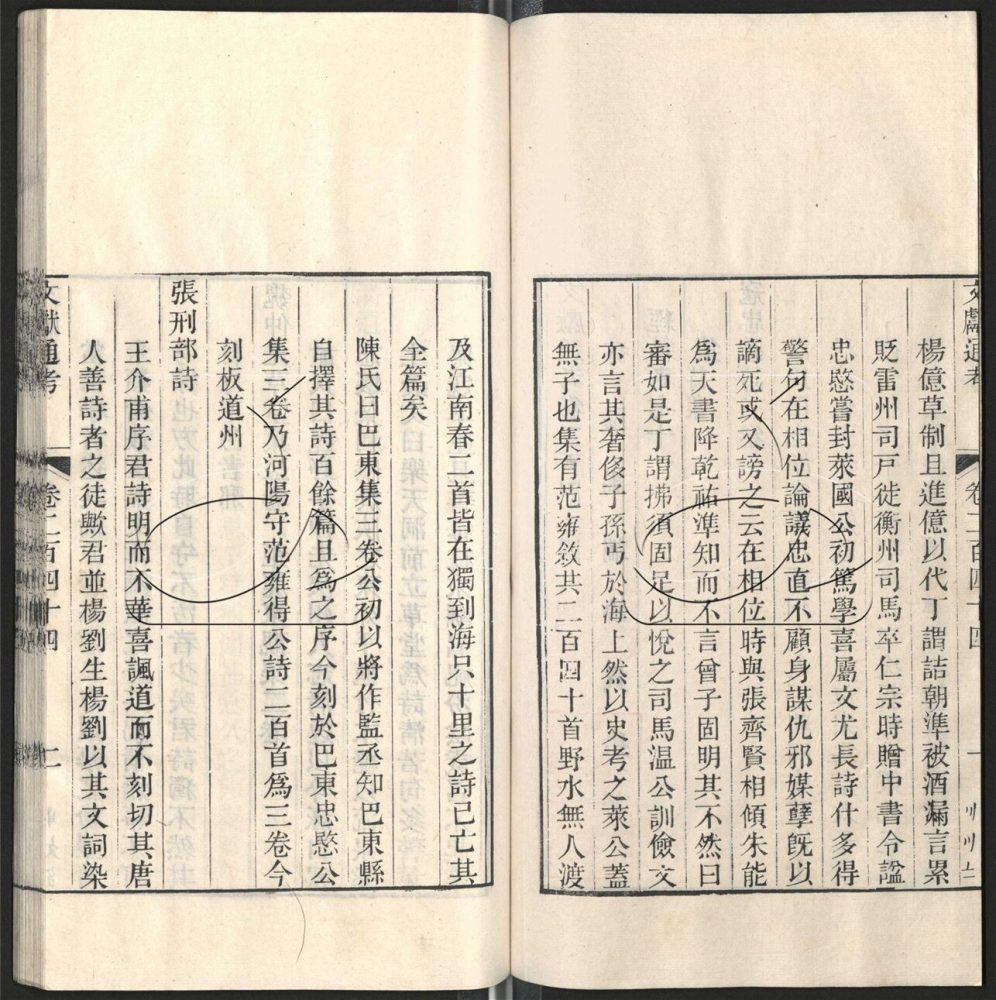 文獻通考 卷二百四十四 一
楊億草制且進億以代丁謂詰朝準被酒漏言累
貶雷州司戶徙衡州司馬卒仁宗時贈中書令諡
忠愍嘗封萊國公初篤學喜屬文尤長詩什多得
警句在相位論議忠直不顧身謀仇邪媒孽旣以
謫死或又謗之云在相位時與張齊賢相傾朱能
爲天書降乾祐準知而不言曾子固明其不然曰
審如是丁謂拂須固足以悅之司馬溫公訓儉文
亦言其奢侈子孫丐於海上然以史考之萊公蓋
無子也集有范雍敘共二百四十首野水無人渡
及江南春二首皆在獨到海只十里之詩已亡其
全篇矣
陳氏曰巴東集三卷公初以將作監丞知巴東縣
自擇其詩百餘篇且爲之序今刻於巴東忠愍公
集三卷乃河陽守范雍得公詩二百首爲三卷今
刻板道州
張刑部詩
王介甫序君詩明而不華喜諷道而不刻切其唐
人善詩者之徒歟君並楊劉生楊劉以其文詞染
文獻通考 卷二百四十四 二